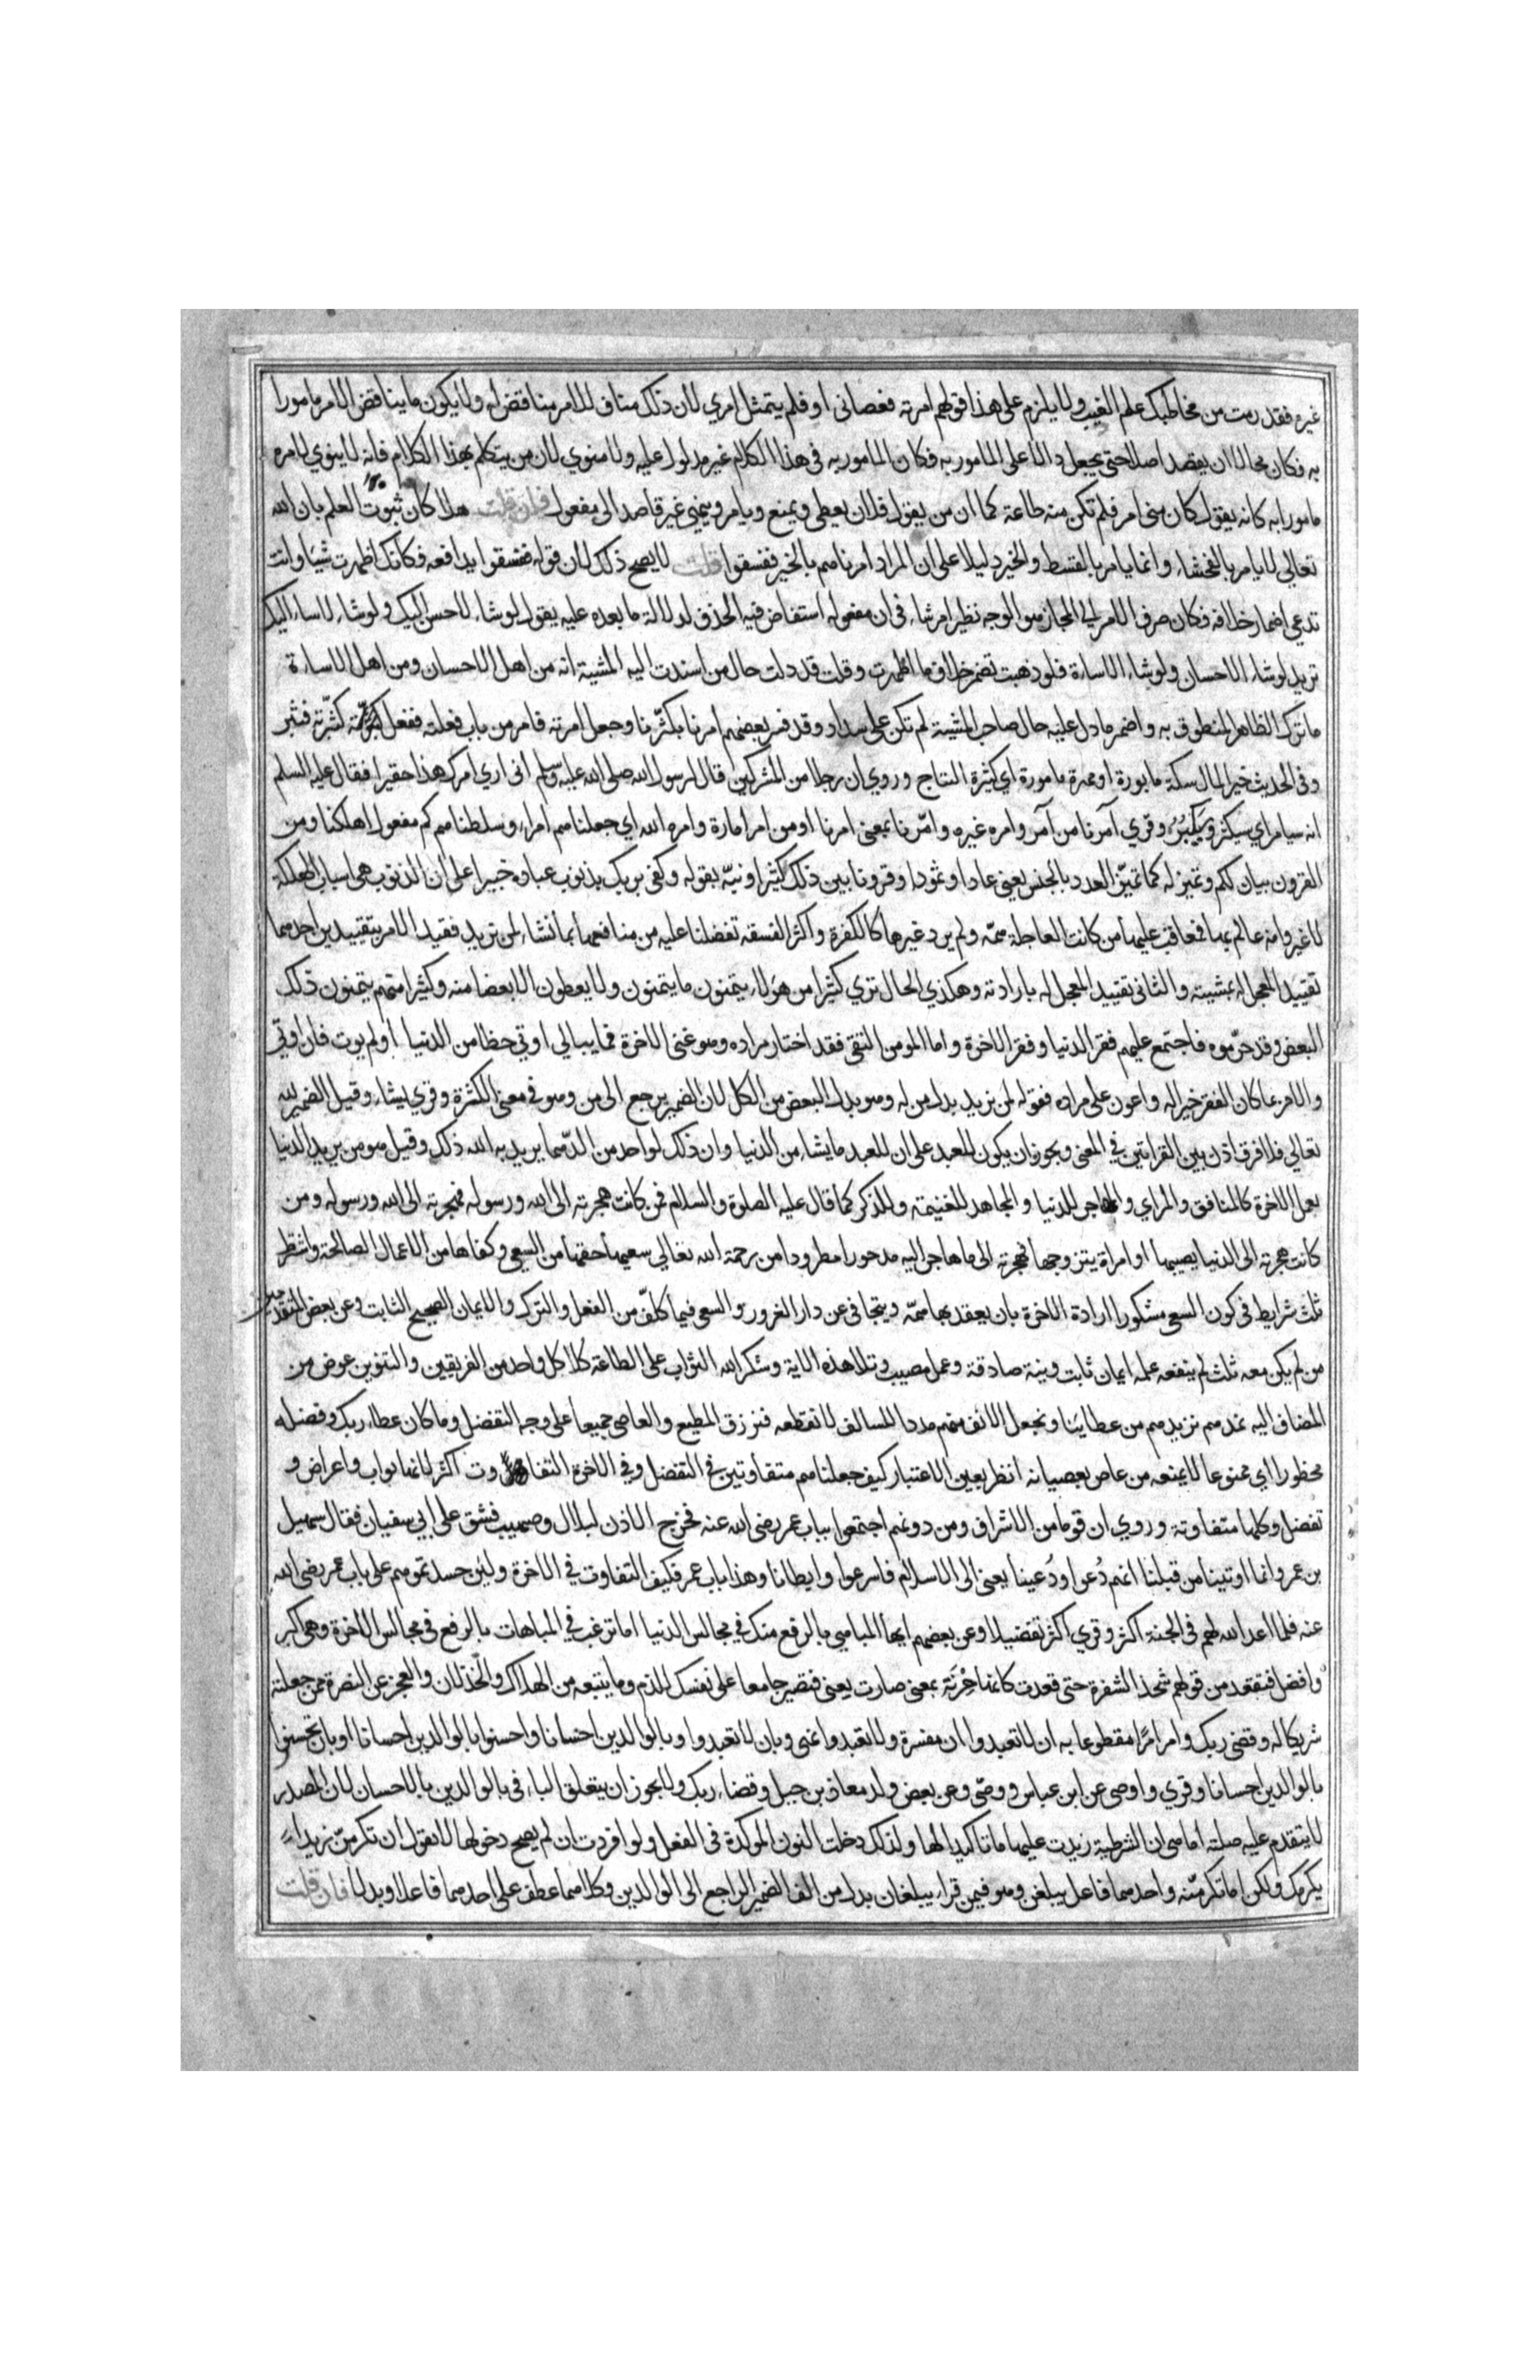 غيره فقد رمت من مخاطبك علم الغيب ولا يلزم على هذا قولهم امرته فعصانى او فلم يتمثل امري لان ذلك مناف للامر مناقض له ولا يكون ما يناقض الامر مامورا
به فكان محالا ان يقصد اصلا حتى يجعل دالا على المامور به فكان المامور به فى هذا الكلام غير مدلول عليه ولا منوي لان من يتكلم بهذا الكلام فانه لا ينوي لامره
مامورا به كانه يقول كان منى امر فلم تكن منه طاعة كما ان من يقول فلان يعطى ويمنع ويامر وينهى غير قاصد الى مفعول فان قلت هلا كان ثبوت العلم بان الله
تعالي لا يامر بالفحشاء وانما يامر بالقسط والخير دليلا على ان المراد امرناهم بالخير ففسقوا قلت لا يصح ذلك لان قوله ففسقوا يدافعه فكانك اظهرت شيا وانت
تدعي اضمار خلافه فكان صرف الامر الى المجاز هو الوجه نظير امر شاء فى ان مفعوله استفاض فيه الحذف لدلالة ما بعده عليه يقول لو شاء لاحسن اليك ولو شاء لاساء اليك
تريد لو شاء الاحسان ولو شاء الاساءة فلو ذهبت تضمر خلاف ما اظهرت وقلت قد دلت حال من اسندت اليه المشية انه من اهل الاحسان ومن اهل الاساءة
ما ترك الظاهر المنطوق به واضمر ما دل عليه حال صاحب المشية لم تكن على سداد وقد فسر بعضهم امرنا بكثرنا وجعل امرته فامر من باب فعلته ففعل كثرته فثبر
وفى الحديث خير المال سكة مابورة او مهرة مامورة اي كثيرة النتاج وروي ان رجلا من المشركين قال لرسول الله صلى الله عليه وسلم انى اري امرك هذا حقيرا فقال عليه السلم
انه سيامر اي سيكثر وسيكبر وقري آمرنا من آمر وامره غيره وامّرنا بمعنى امرنا او من امر امارة وامره الله اي جعلناهم امراء وسلطناهم كم مفعول اهلكنا ومن
القرون بيان لكم وتميز له كما تميّز العدد بالجنس يعنى عادا وثمودا وقرونا بين ذلك كثيرا ونبّه بقوله وكفى بربك بذنوب عباده خبيرا على ان الذنوب هى اسباب الهلكة
لا غير وانه عالم بها فمعاقب عليها من كانت العاجلة همّه ولم يرد غيرها كالكفرة واكثر الفسقه تفضلنا عليه من منافعها بما نشاء لمن نريد فقيد الامر بتقييدين احدهما
تقييد المعجل له بمشيته والثانى تقييد المعجل له بارادته وهكذي الحال تري كثيرا من هولاء يتمنون ما يتمنون ولا يعطون الا بعضا منه وكثيرا منهم يتمنون ذلك
البعض وقد حرموه فاجتمع عليهم فقر الدنيا وفقر الاخرة واما المومن التقى فقد اختار مراده وهو غنى الاخرة فما يبالي اوتي حظا من الدنيا او لم يوت فان اوتي
والا فربما كان الفقر خيرا له واعون على مراده فقوله لمن نريد بدل من له وهو بدل البعض من الكل لان الضمير يرجع الى من وهو فى معنى الكثرة وقري يشاء وقيل الضمير لله
تعالي فلا فرق اذن بين القراتين في المعنى ويجوز ان يكون للعبد على ان للعبد ما يشاء من الدنيا وان ذلك لواحد من الدهما يريد به الله ذلك وقيل هو من يريد الدنيا
بعمل الاخرة كالمنافق والمراي والمهاجر للدنيا والمجاهد للغنيمة وللذكر كما قال عليه الصلوة والسلام فمن كانت هجرته الى الله ورسوله فهجرته الى الله ورسوله ومن
كانت هجرته الى الدنيا يصيبها او امراة يتزوجها فهجرته الى ما هاجر اليه مدحورا مطرودا من رحمة الله تعالي سعيها حقها من السعى وكفاها من الاعمال الصالحة واشترط
ثلث شرايط فى كون السعى مشكورا ارادة الاخرة بان يعقد بها همّه ويتجافى عن دار الغرور والسعى فيما كلّف من الفعل والترك والايمان الصحيح الثابت وعن بعض المتقدمين
من لم يكن معه ثلث لم ينفعه عمله ايمان ثابت ونية صادقة وعمل مصيب وتلا هذه الاية وشكر الله الثواب على الطاعة كلا كل واحد من الفريقين والتنوين عوض من
المضاف اليه نمدهم نزيدهم من عطايئنا ونجعل الانف منهم مددا للسالف لا نقطعه فنرزق المطيع والعاصى جميعا على وجه التفضل وما كان عطاء ربك وفضله
محظورا اي ممنوعا لا يمنعه من عاص بعصيانه انظر بعين الاعتبار كيف جعلناهم متفاوتين فى التفضل وفى الاخرة التفاوت اكثر لانها ثواب واعراض و
تفضل وكلها متفاوتة وروي ان قوما من الاشراف ومن دونهم اجتمعوا بباب عمر رضى الله عنه فخرج الاذن لبلال وصهيب فشق على ابي سفيان فقال سهيل
بن عمرو انما اوتينا من قبلنا انهم دُعوا ودُعينا يعنى الى الاسلام فاسرعوا وابطانا وهذا باب عمر فكيف التفاوت في الاخرة ولين حسدتموهم على باب عمر رضى الله
عنه فلما اعد الله لهم فى الجنة اكثر وقري اكثر تفضيلا وعن بعضهم ايها المباهي بالرفع منك في مجالس الدنيا اما ترغب في المباهات بالرفع فى مجالس الاخرة وهى اكبر
وافضل فتقعد من قولهم شحذ الشفرة حتى قعدت كانها حربة بمعنى صارت يعنى فتصير جامعا على نفسك الذم وما يتبعه من الهلاك والخذلان والعجز عن النصرة ممن جعلته
شريكا له وقضى ربك وامر امرًا مقطوعا به ان لا تعبدوا ان مفسرة ولا تعبدوا نهى وبان لا تعبدوا وبالوالدين احسانا واحسنوا بالوالدين احسانا او بان تحسنوا
بالوالدين احسانا وقري واوصى عن ابن عباس ووصّى وعن بعض ولد معاذ بن جبل وقضاء ربك ولا يجوز ان يتعلق الباء فى بالوالدين بالاحسان لان المصدر
لا يتقدم عليه صلته اما هى ان الشرطية زيدت عليها ما تاكيدا لها ولذلك دخلت النون الموكدة فى الفعل ولو افردت ان لم يصح دخولها لا تقول ان تكرمنّ زيدا
يكرمك ولكن اما تكرمنّه واحدهما فاعل يبلغن وهو فيمن قراء يبلغان بدل من الف الضمير الراجع الى الوالدين وكلاهما عطف على احدهما فاعلا وبدلا فان قلت